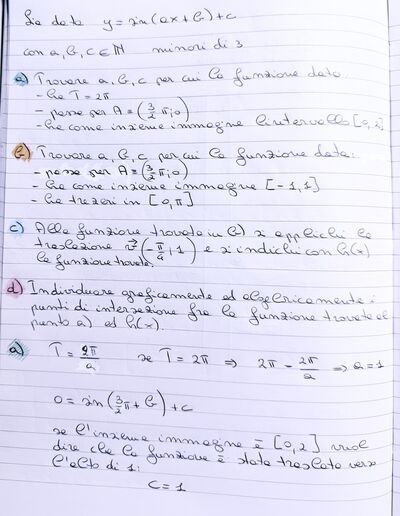 Sia data y = sin(ax+b)+c
con a, b, c ∈ ℕ minori di 3
a) Trovare a, b, c per cui la funzione data:
- ha T = 2π
- passa per A = (3/2 π; 0)
- ha come insieme immagine l'intervallo [0, 2]
b) Trovare a, b, c per cui la funzione data:
- passa per A = (3/2 π; 0)
- ha come insieme immagine [-1, 1]
- ha tre zeri in [0, π]
c) Alla funzione trovata in b) si applichi la
traslazione v⃗(-π/a; 1) e si indichi con h(x)
la funzione trovata.
d) Individuare graficamente ed algebricamente i
punti di intersezione fra la funzione trovata al
punto a) ed h(x).
a) T = 2π/a se T = 2π ⇒ 2π = 2π/a ⇒ a = 1
0 = sin(3/2 π + b) + c
se l'insieme immagine è [0, 2] vuol
dire che la funzione è stata traslata verso
l'alto di 1:
c = 1